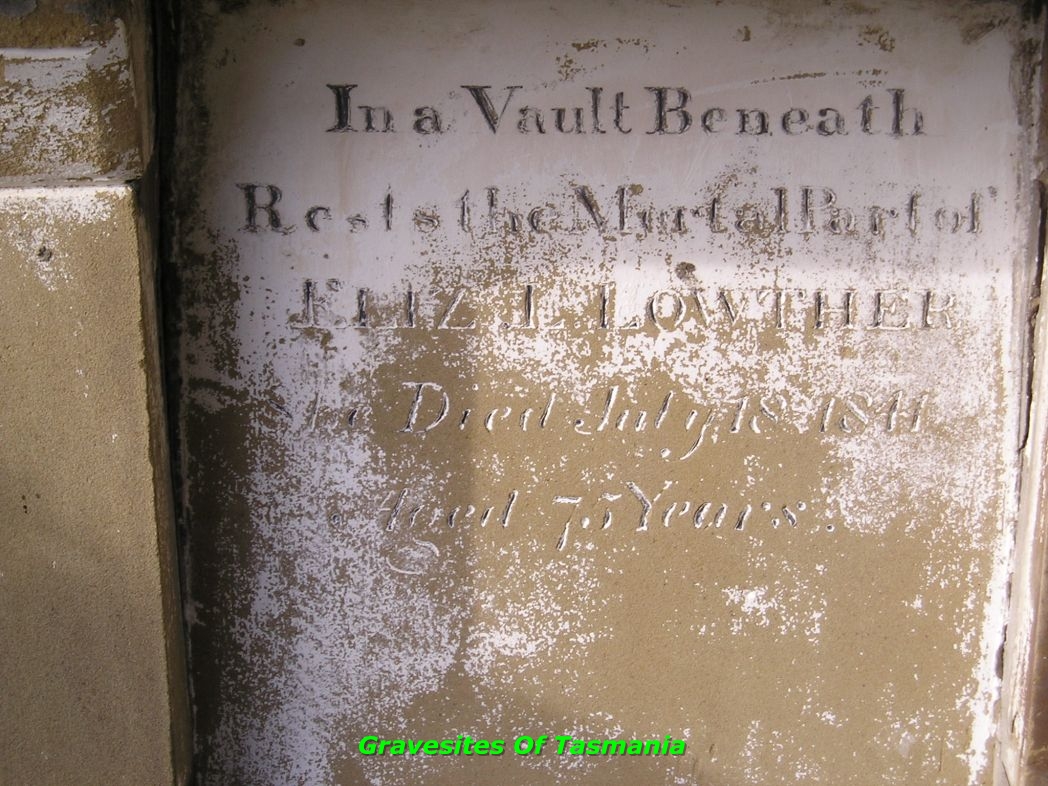 In a Vault Beneath
Rests the Mortal Part of
ELIZ. L. LOWTHER
Died July 18. 18
Aged 75 Years.
Gravesites Of Tasmania